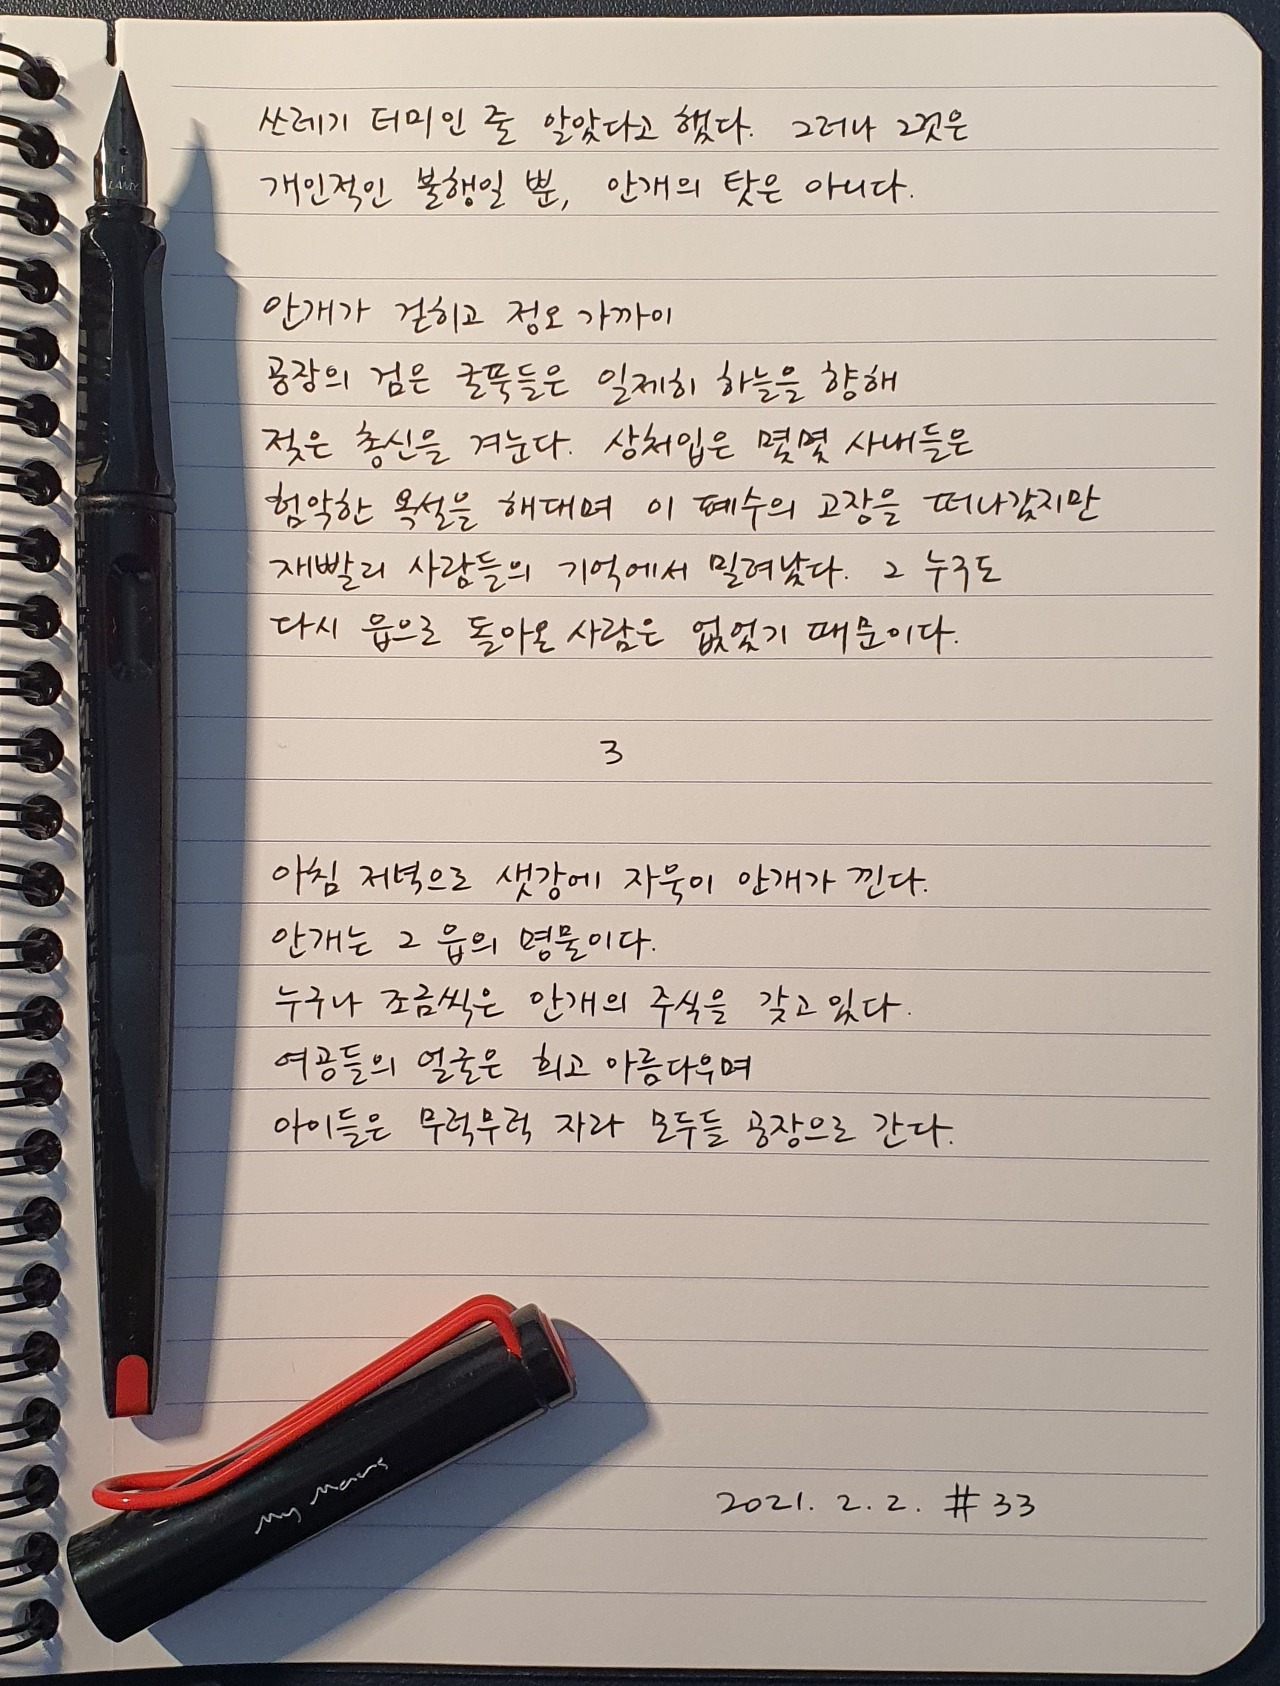 쓰레기 터미인 줄 알았다고 했다. 그러나 그것은
개인적인 불행일 뿐, 안개의 탓은 아니다.
안개가 걷히고 정오 가까이
공장의 검은 굴뚝들은 일제히 하늘을 향해
젖은 총신을 겨눈다. 상처입은 몇몇 사내들은
험악한 욕설을 해대며 이 폐수의 고장을 떠나갔지만
재빨리 사람들의 기억에서 밀려났다. 그 누구도
다시 읍으로 돌아온 사람은 없었기 때문이다.
3
아침 저녁으로 샛강에 자욱이 안개가 낀다.
안개는 그 읍의 명물이다.
누구나 조금씩은 안개의 주식을 갖고 있다.
여공들의 얼굴은 희고 아름다우며
아이들은 무럭무럭 자라 모두들 공장으로 간다.
2021. 2. 2. #33
F
LAMY
My